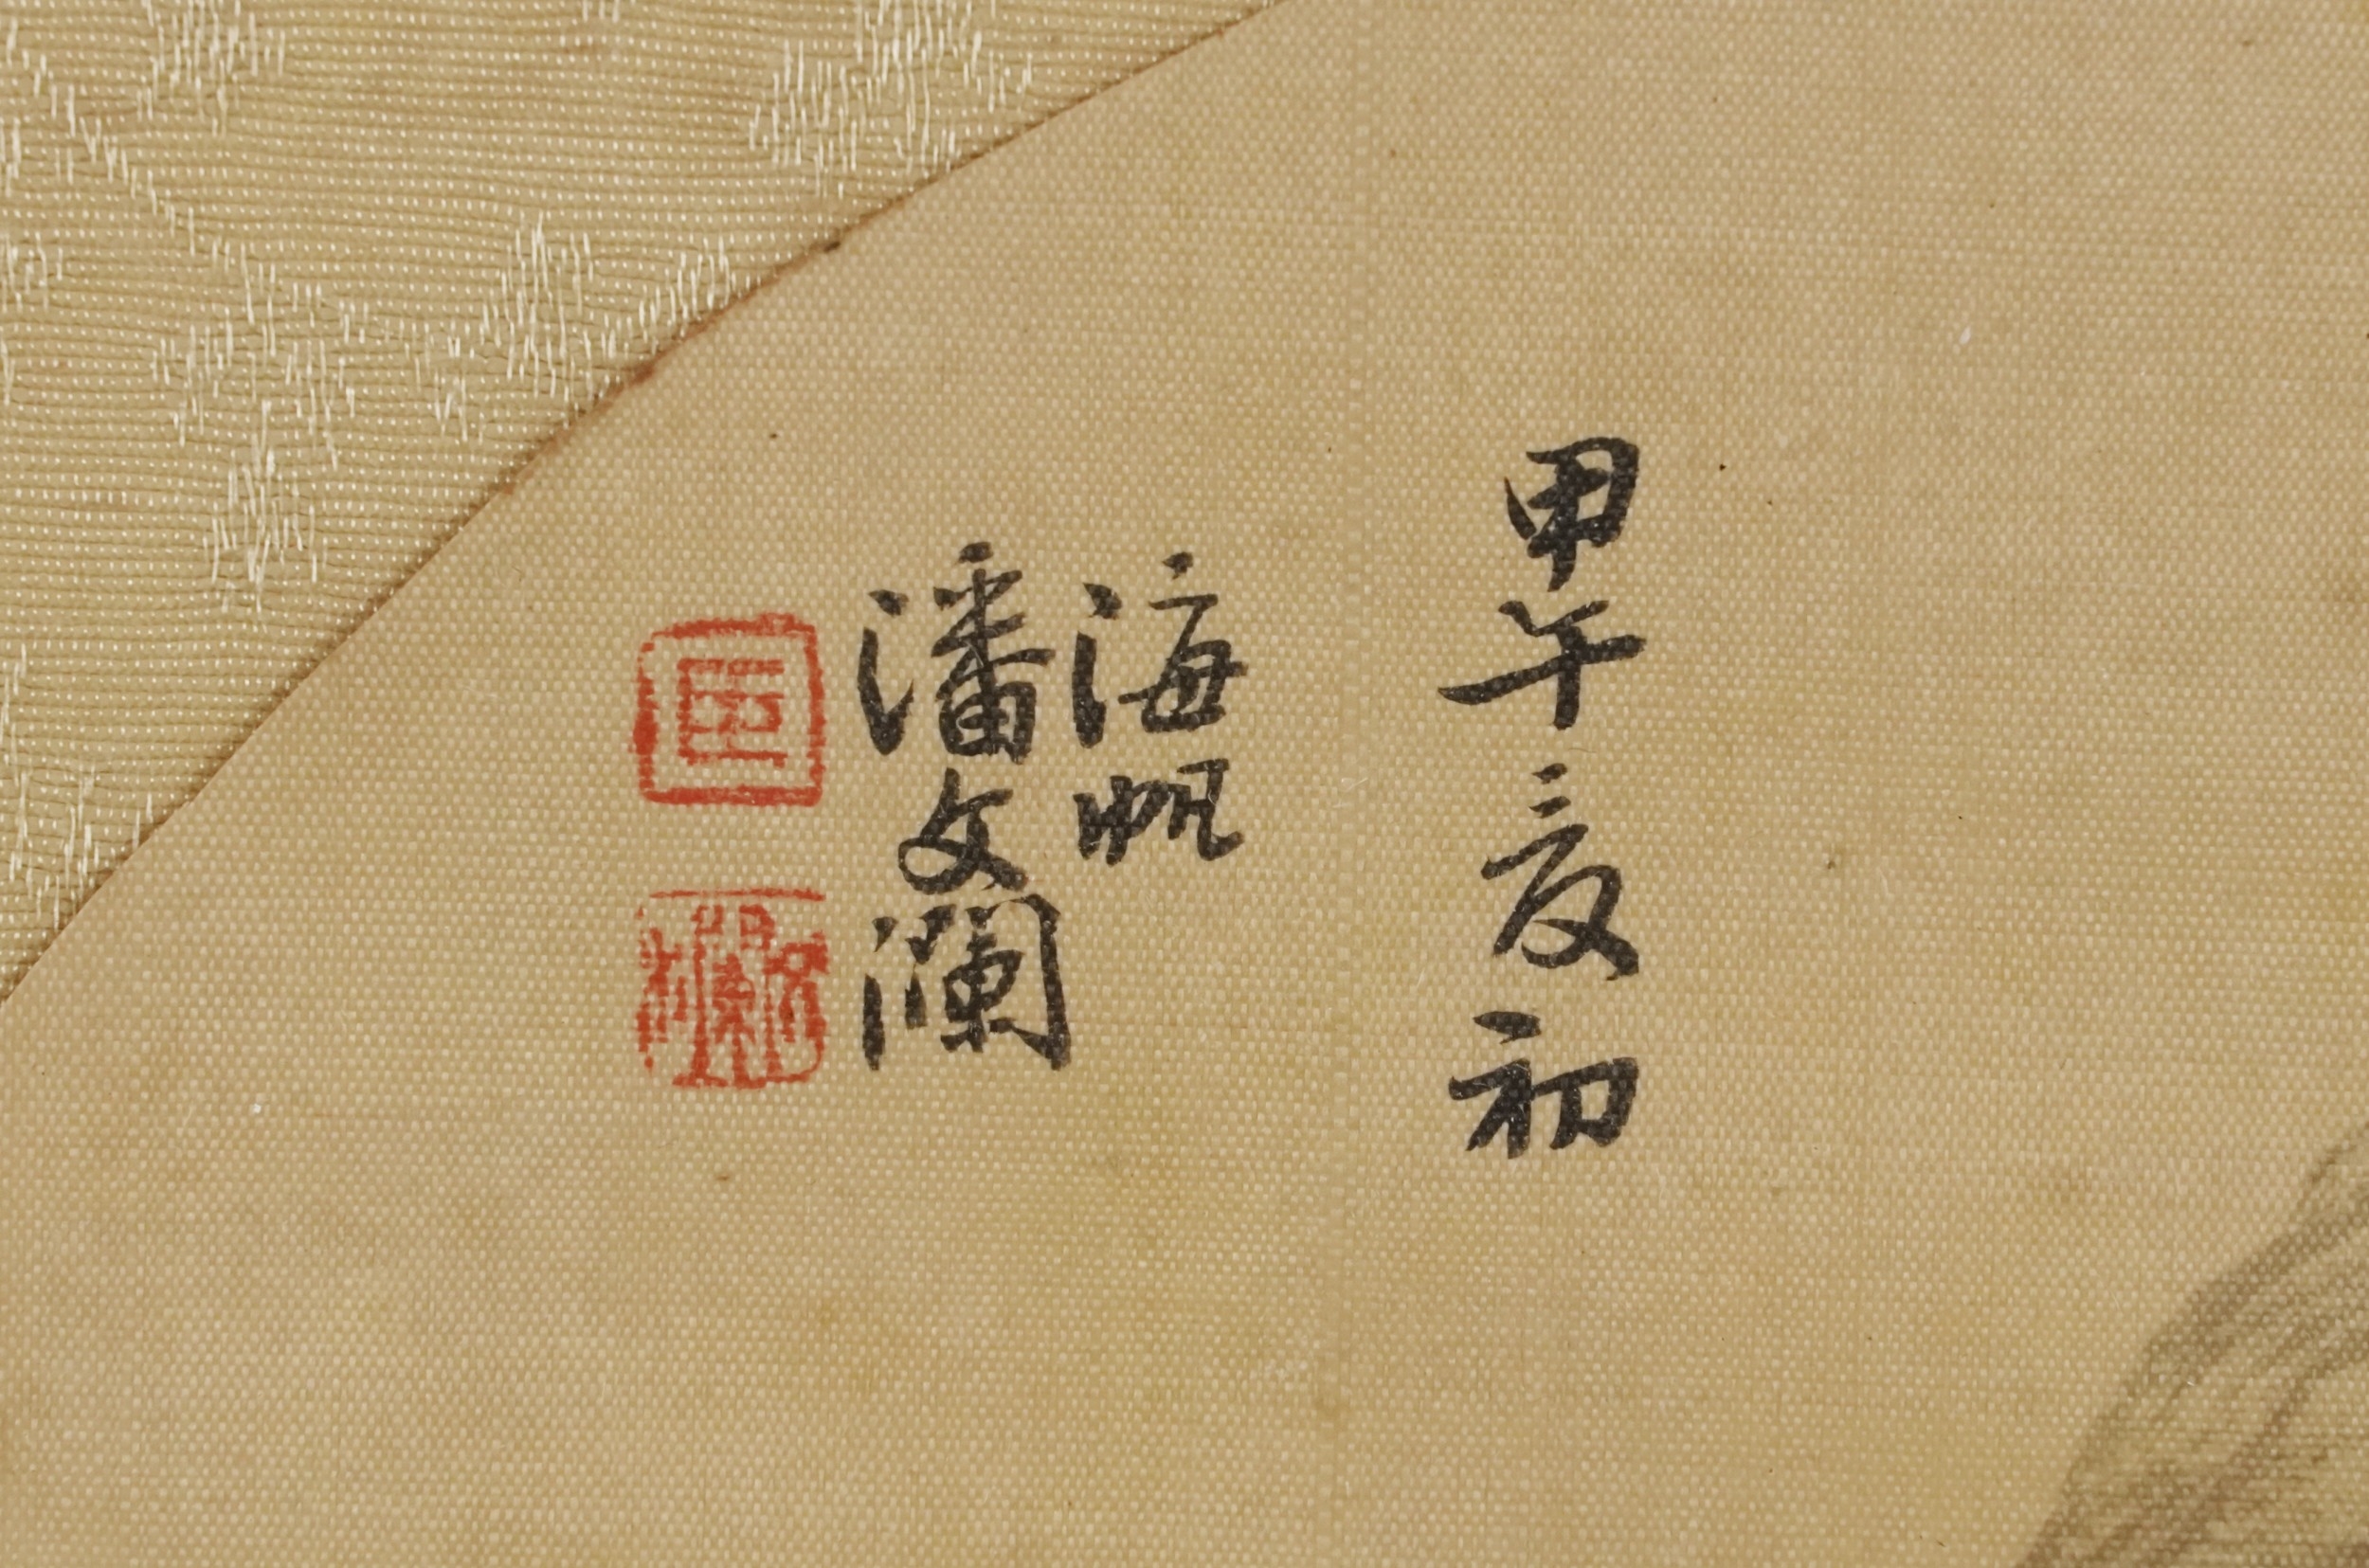 甲午夏初
海帆
潘文澜